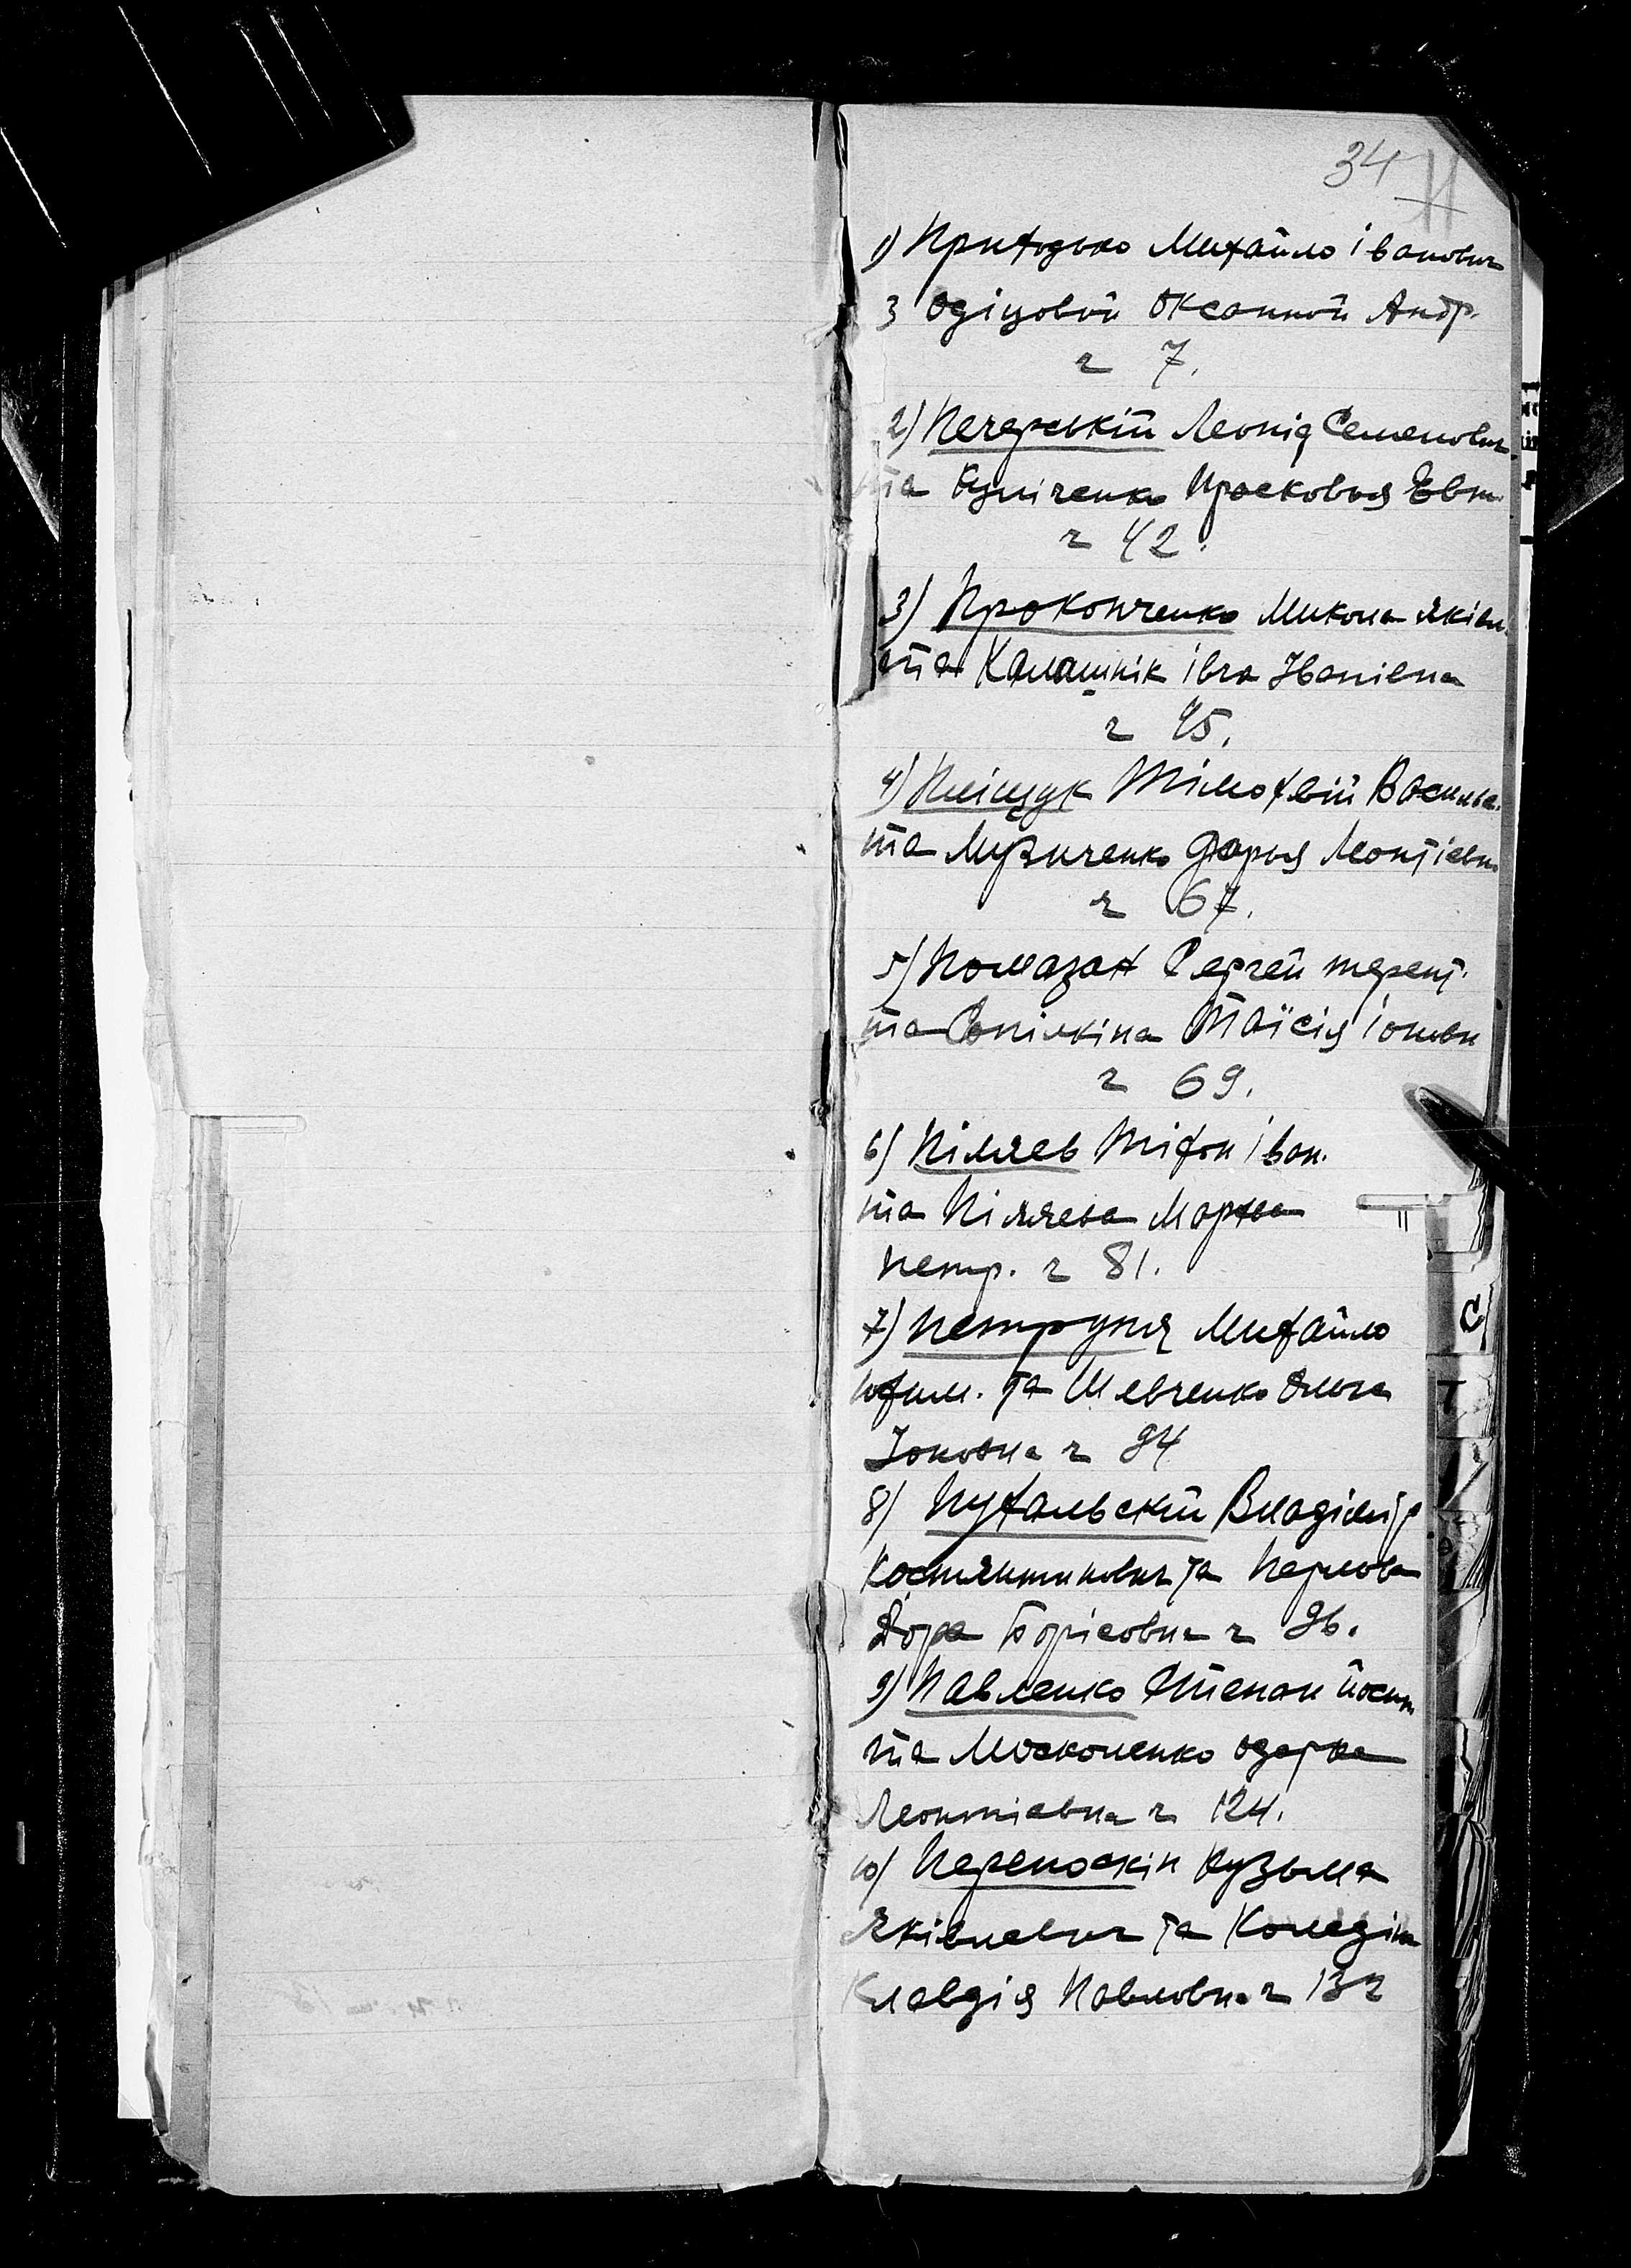 34 П
1) Приходько Михайло Іванович
з Одіцовой Оксанной Андр.
ч 7.
2) Печерській Леонід Семенович
та Куліченко Просковья Евт.
ч 42.
3) Прокопченко Микола Яківл.
та Калашнік Івга Іванівна
ч 45.
4) Поліщук Тімофвій Василье.
та Музиченко Дарья Леонтіевн.
ч 67.
5) Помазан Сергей терент.
та Таїсія Іоновн
ч 69.
6) Піляев Тіфон Іван.
та Піляева Марва
петр. ч 81.
7) Петруня Михайло
юхим. та Шевченко Ольга
Іоновна ч 94
8) Пухальскій Владімір
Костянтинович та Перлова
Дора Борісовна ч 96.
9) Павленко Степан Йосип
та Москаленко Одарка
Леонтіевна ч 124.
10) Переноскін Кузьма
Яківлевич та
Клавдія Павловна ч 132
С
Т